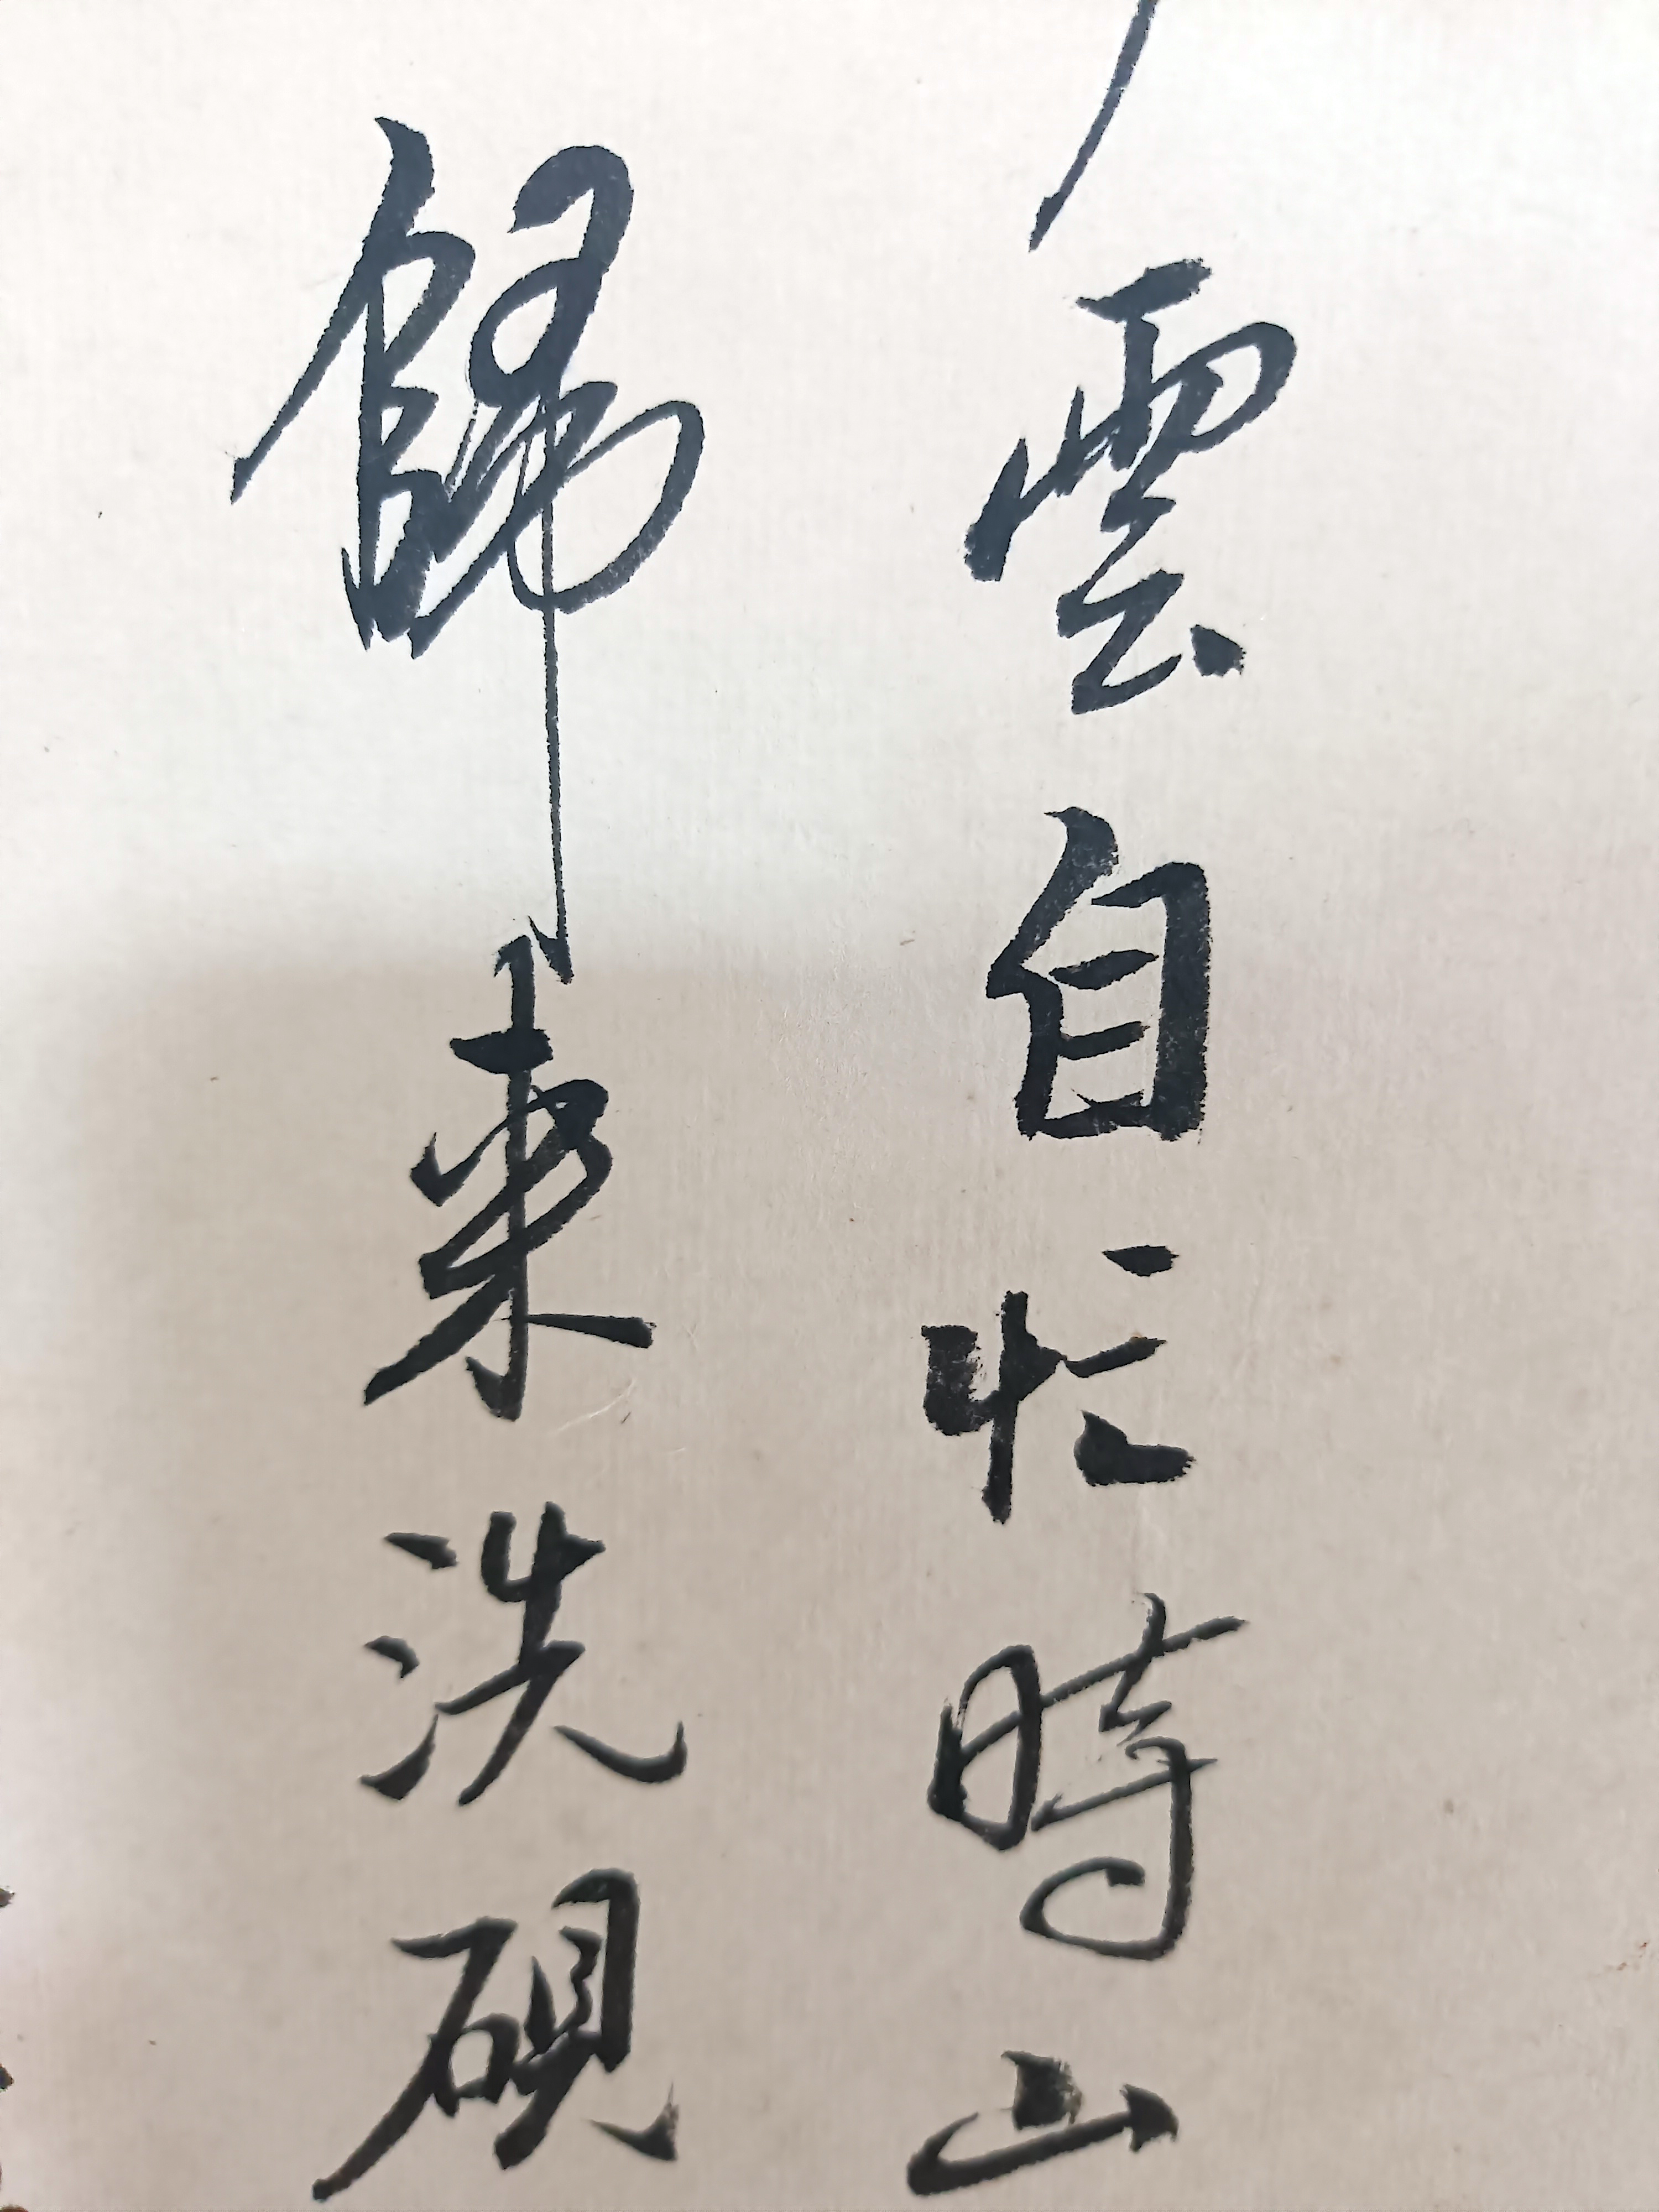 雲自忙時山
歸來洗硯